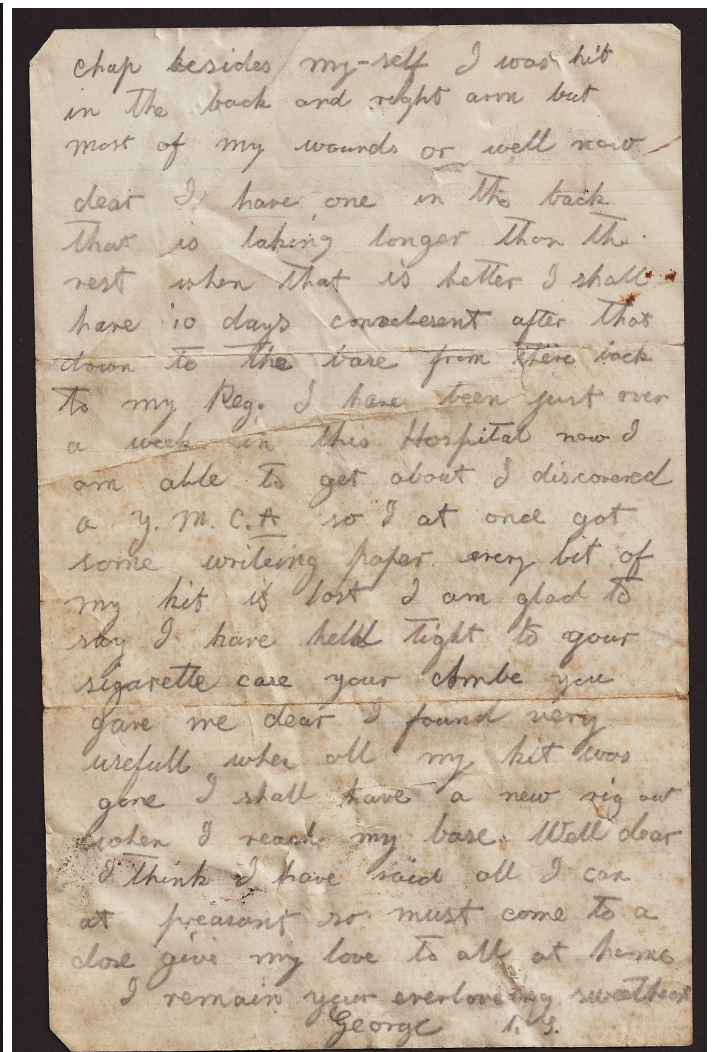 chap besides my-self I was hit
in the back and right arm but
most of my wounds or well now
dear I have one in the back
that is taking longer than the
rest when that is better I shall
have 10 days convelesent after that
down to the base from there back
to my Reg. I have been just over
a week in this Hospital now I
am able to get about I discovered
a Y.M.C.A so I at once got
some writeing paper every bit of
my kit is lost I am glad to
say I have held tight to your
sigarette case your you
gave me dear I found very
usefull when all my kit was
gone I shall have a new rig out
when I reach my base. Well dear
I think I have said all I can
at preasant so must come to a
close give my love to all at home
I remain your everloveing sweetheart
George